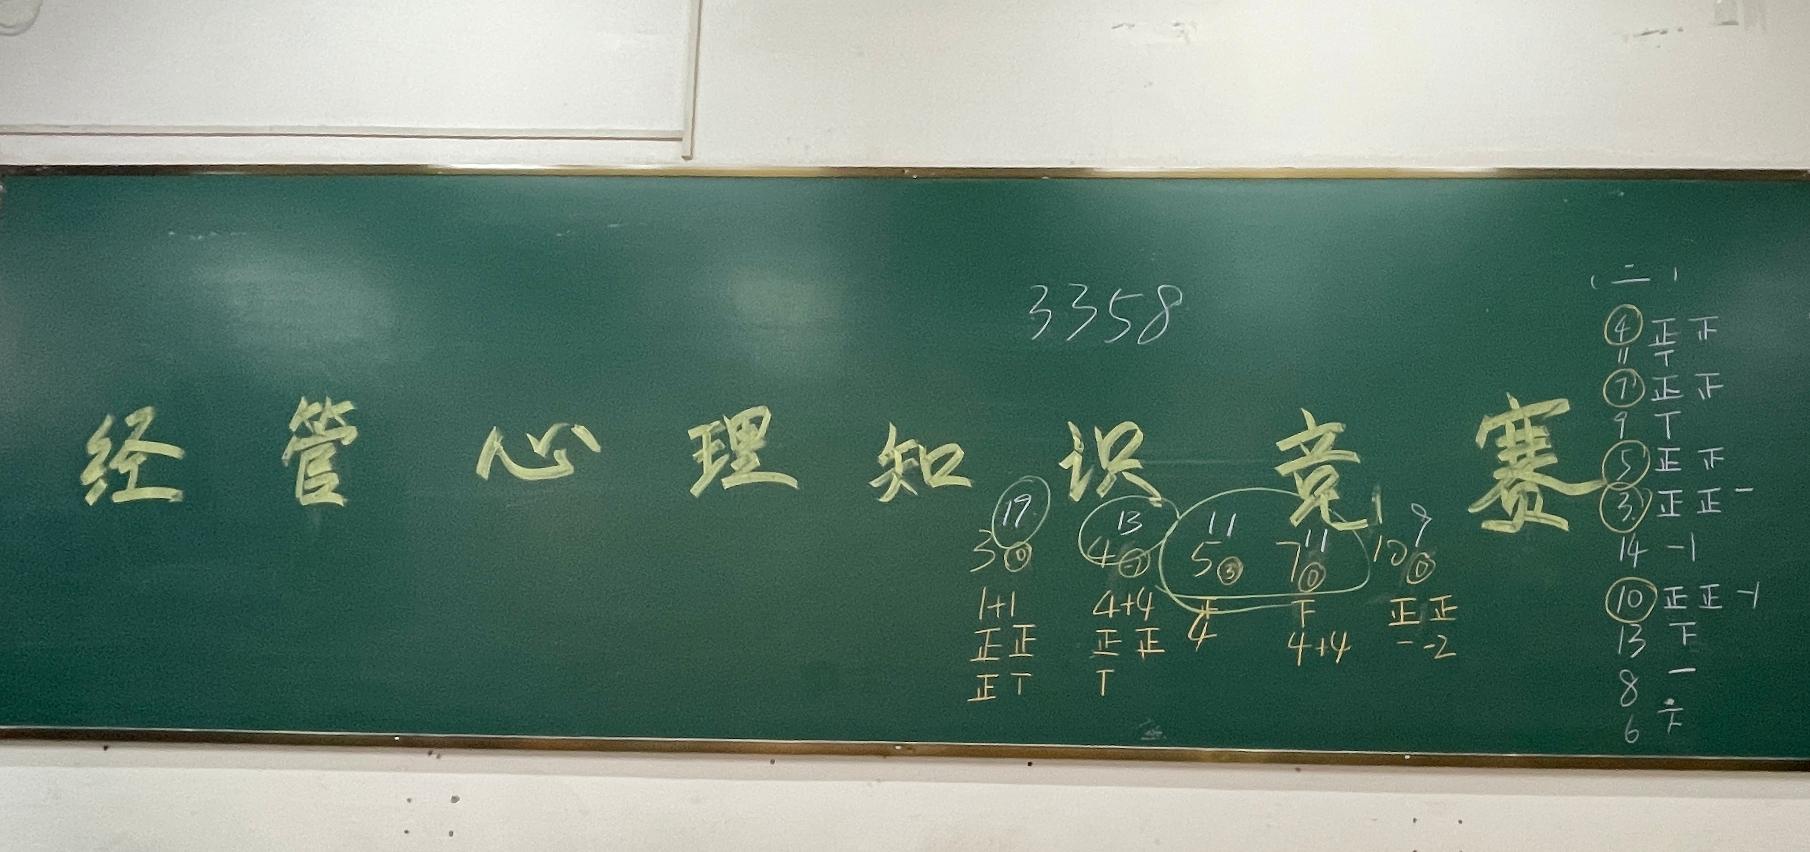 3358
经管心理知识竞赛
19 13 11 11 9
3 0 4 -1 5 3 7 0 10 0
1+1 4+4 正 下 正 正
正 正 正 正 4 4+4 一 -2
正 T T
(二)
4 正 下
11 T
7 正 下
9 T
5 正 下
3 正 正 一
14 -1
10 正 正 -1
13 下
8 一
6